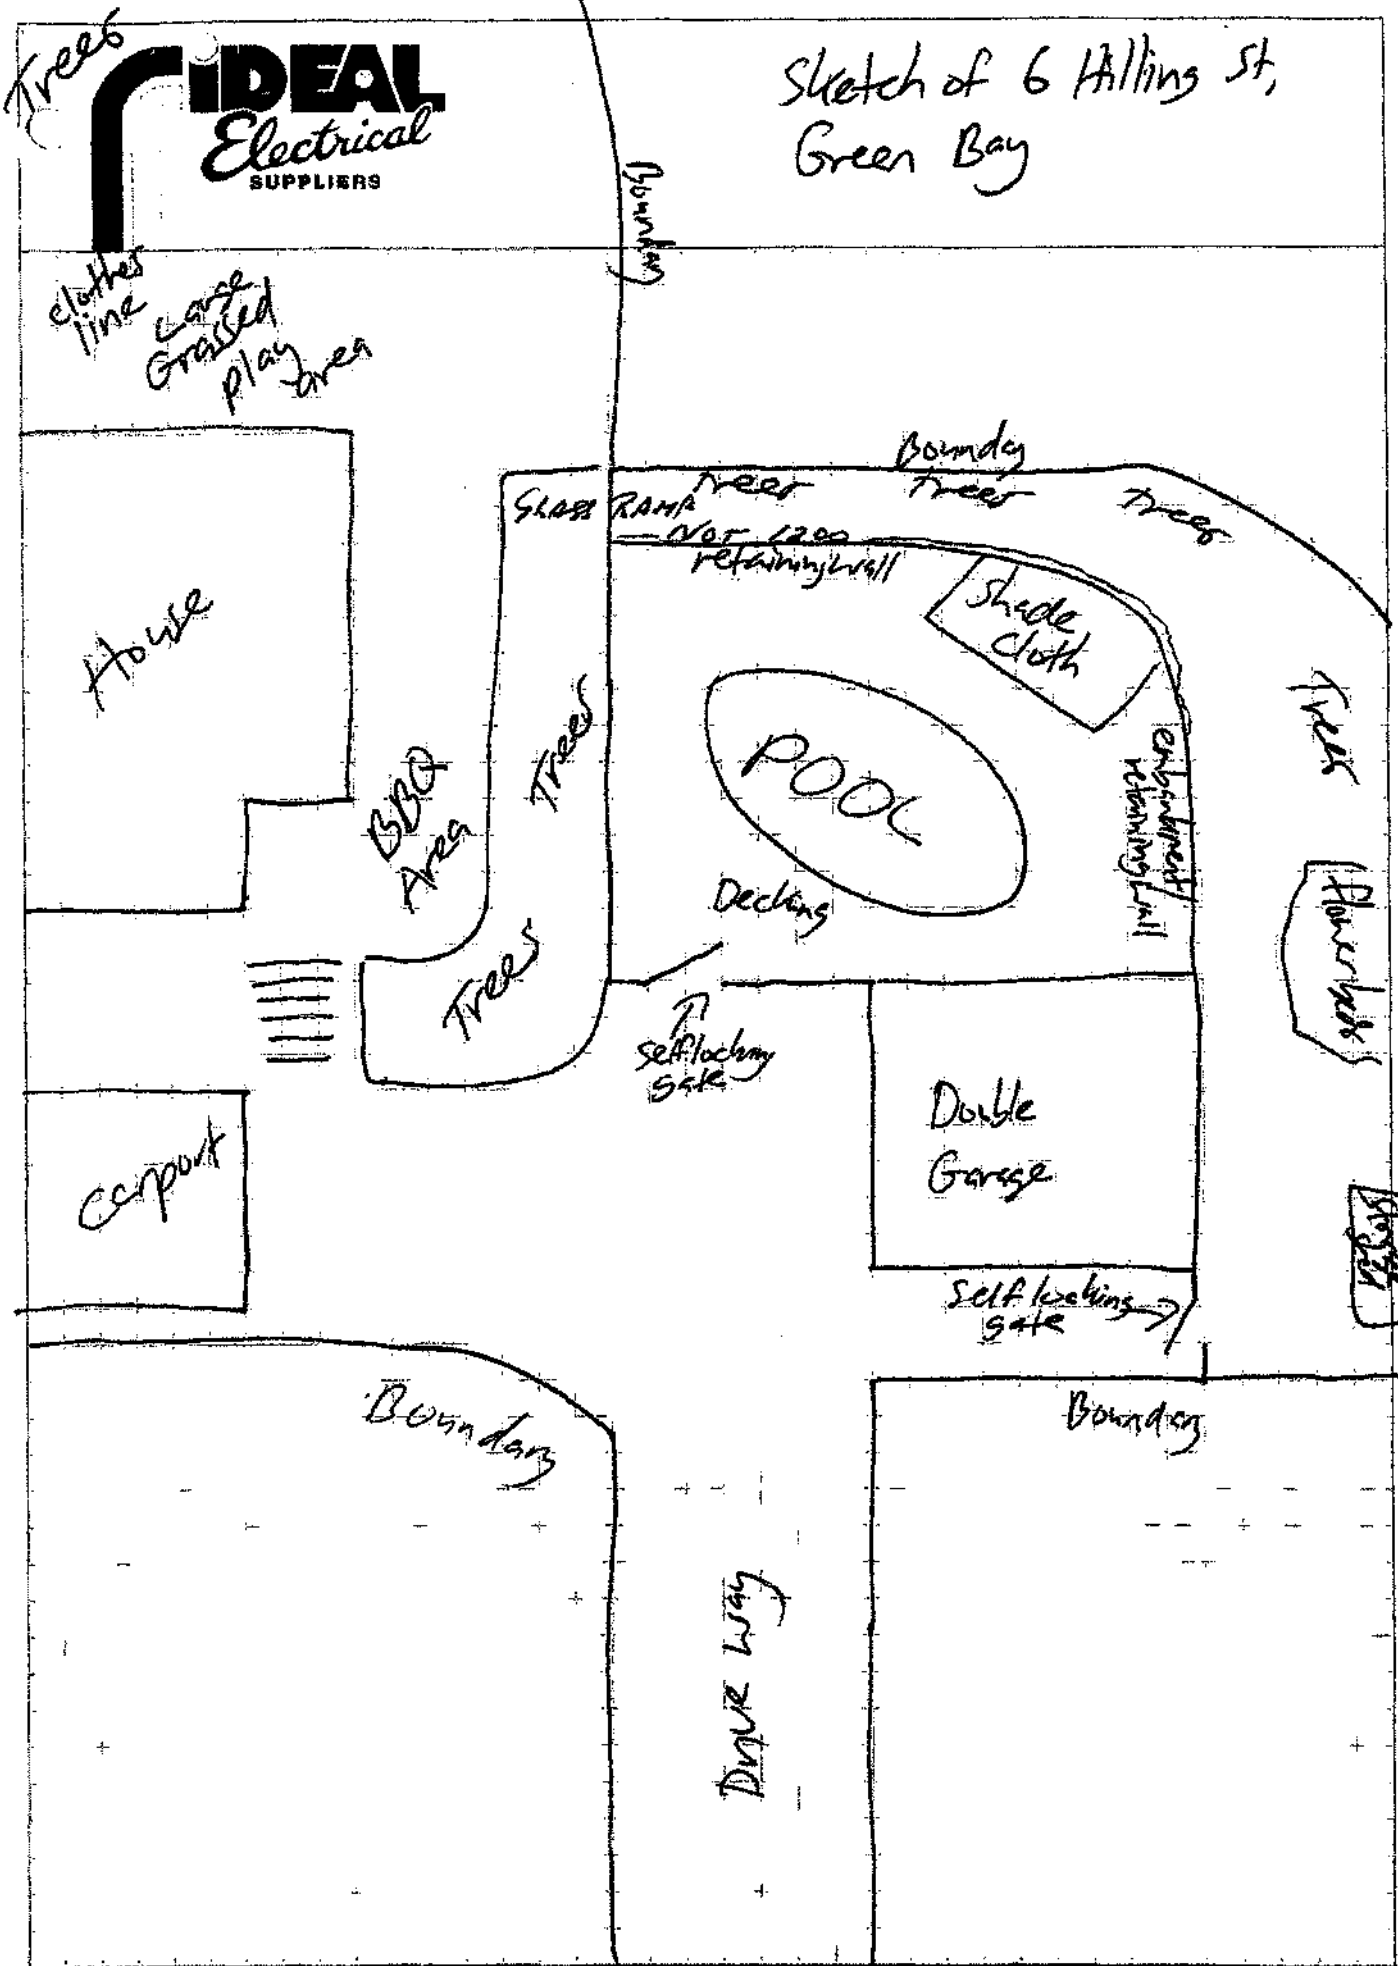 Trees
iDEAL
Electrical
SUPPLIERS
Sketch of 6 Hilling St,
Green Bay
Boundary
clothes
line
Large
Grassed
play
area
Boundry
Trees
Trees
Trees
GLASS RAMP
NOT 1200
retaining wall
Shade
Cloth
House
Trees
Trees
POOL
BBQ
Area
embankment
retaining wall
Decking
Trees
Self locking
gate
Double
Garage
Carport
Self locking
gate
Boundary
Boundry
Drive Way